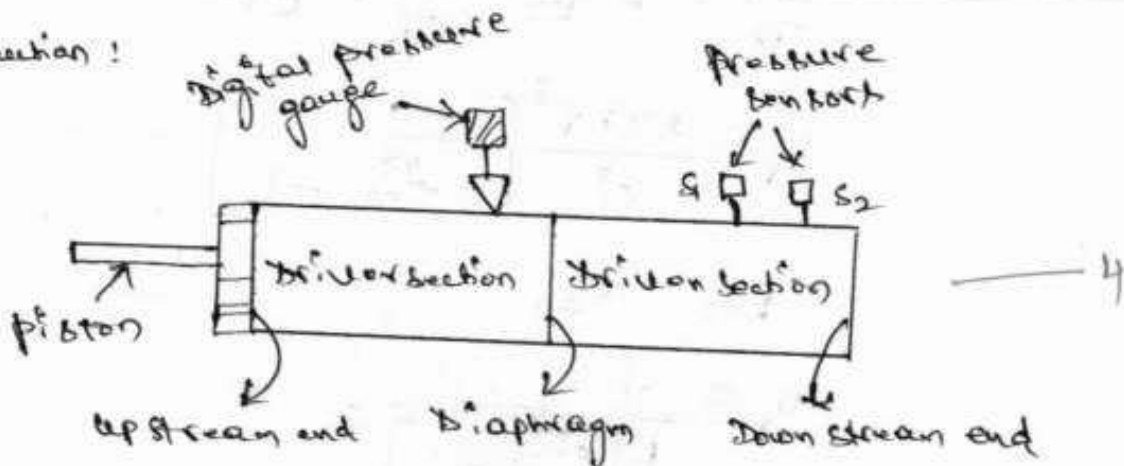 uction :
Digital pressure
gauge
Pressure
sensors
S1
S2
Driver section
Driven section
4
Piston
Up stream end
Diaphragm
Down stream end